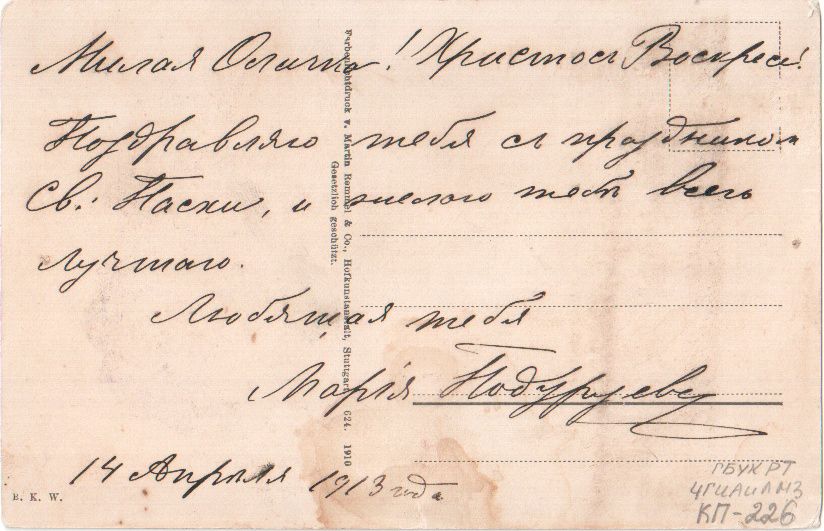 Милая Оличка! Христосъ Воскресе!
Поздравляю тебя съ праздникомъ
Св: Пасхи, и желаю тебѣ всего
лучшаго.
Любящая тебя
Марія
14 Апрѣля 1913 года
Farbenlichtdruck v. Martin Rommel & Co., Hofkunstanstalt, Stuttgart. 624. 1910
Gesetzlich geschützt.
B. K. W.
ГБУК РТ
ЧГИАиЛМЗ
КП-226